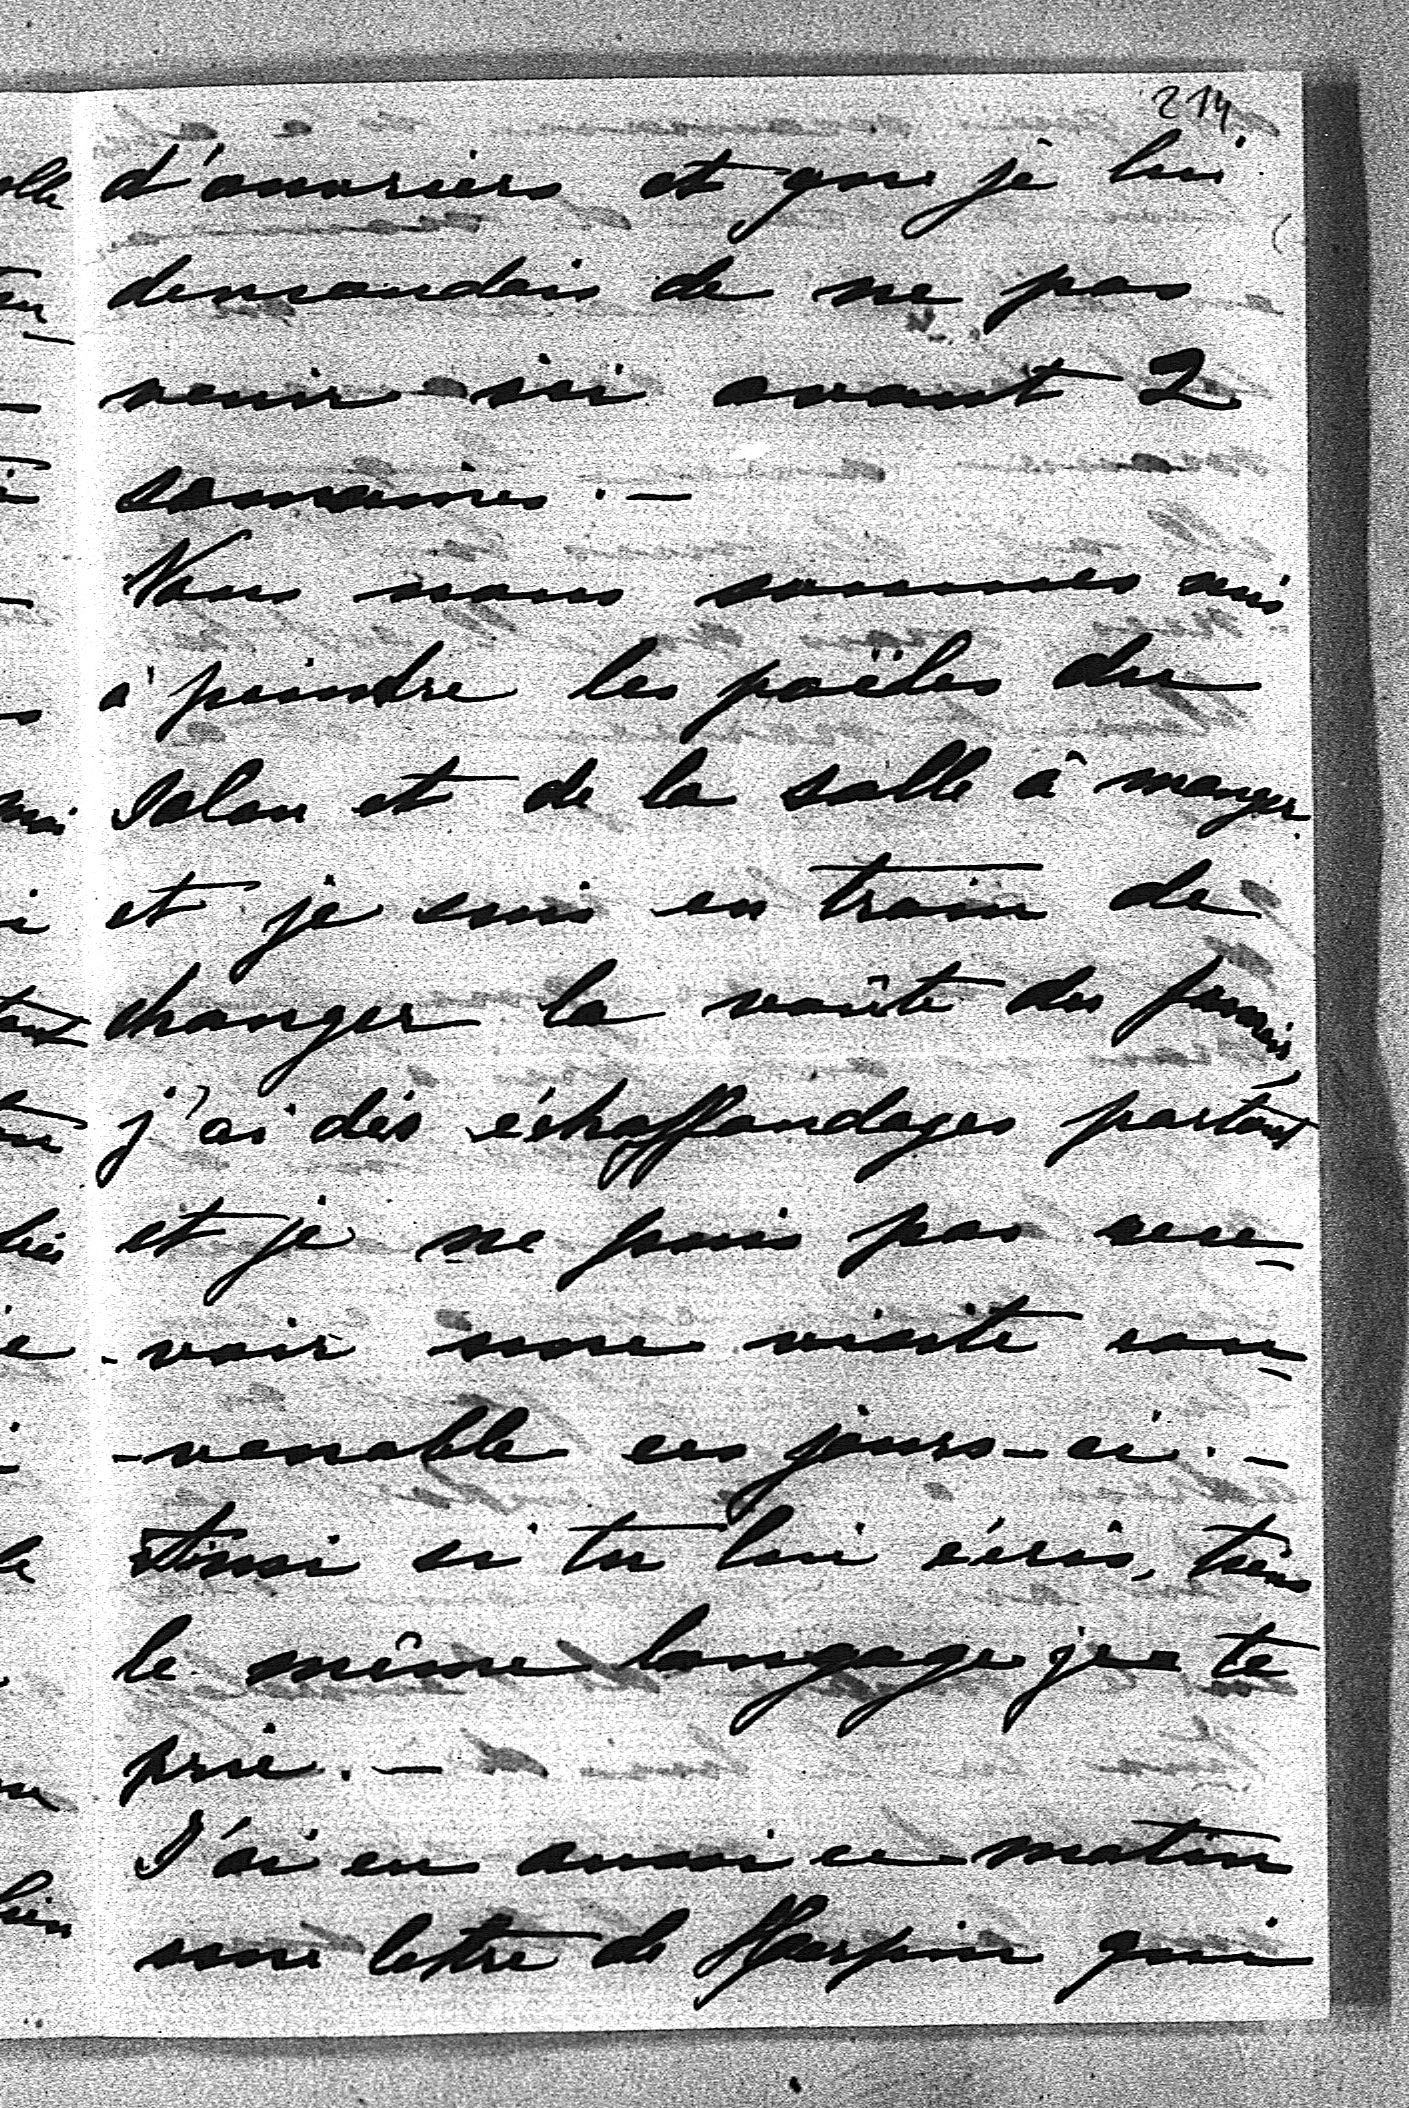 214.
d'ouvriers et que je lui
demandais de ne pas
venir ici avant 2
semaines. —
Nous nous sommes mis
à peindre les poëles du
salon et de la salle à manger
et je suis en train de
changer la voûte du
j'ai des échaffaudages partout
et je ne puis pas rece-
-voir une visite con-
-venable ces jours-ci. —
Ainsi si tu lui écris, tiens
le même langage je te
prie. —
J'ai eu aussi ce matin
une lettre de qui